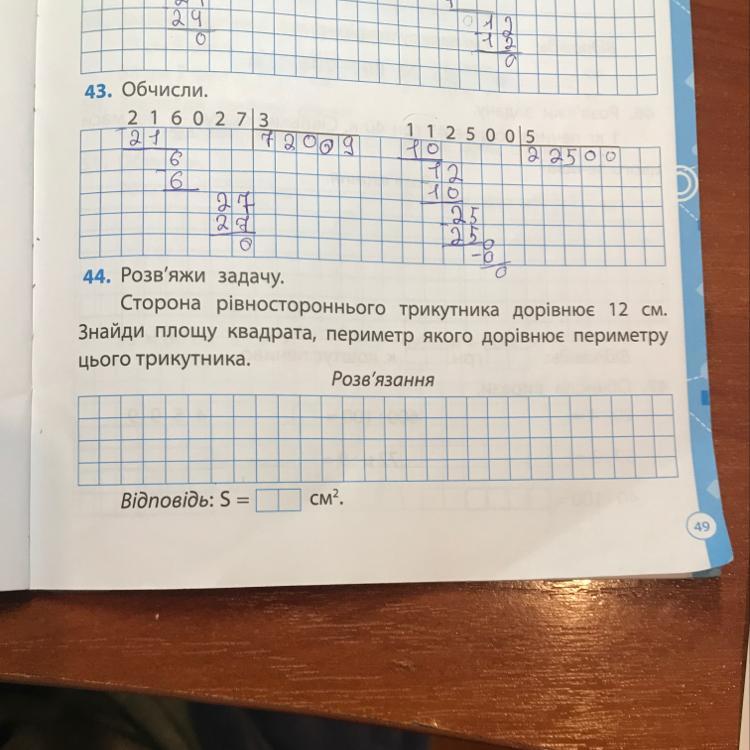 24
0
12
12
0
43. Обчисли.
216027 3
21 72009
6
6
27
27
0
112500 5
10 22500
12
10
25
25
0
0
0
44. Розв'яжи задачу.
Сторона рівностороннього трикутника дорівнює 12 см.
Знайди площу квадрата, периметр якого дорівнює периметру
цього трикутника.
Розв'язання
Відповідь: S = см².
49